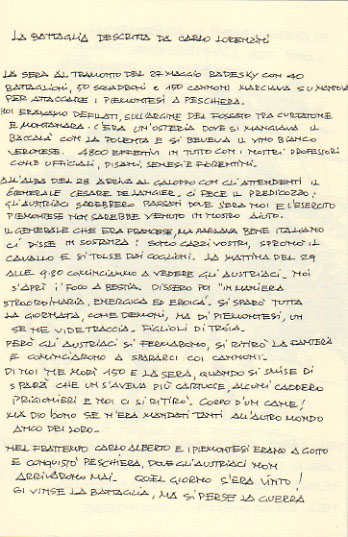 LA BATTAGLIA DESCRITTA DA CARLO LORENZINI
LA SERA AL TRAMONTO DEL 27 MAGGIO RADESKY CON 40
BATTAGLIONI, 50 SQUADRONI E 150 CANNONI MARCIAVA SU MANTOVA
PER ATTACCARE I PIEMONTESI A PESCHIERA.
NOI ERAVAMO DEFILATI, SULL'ARGINE DEL FOSSATO TRA CURTATONE
E MONTANARA. C'ERA UN'OSTERIA DOVE SI MANGIAVA IL
BACCALÀ CON LA POLENTA E SI BEVEVA IL VINO BIANCO
VERONESE. 4800 EFFETTIVI IN TUTTO CON I NOSTRI PROFESSORI
COME UFFICIALI, PISANI, SENESI E FIORENTINI.
ALL'ALBA DEL 28 ARRIVA AL GALOPPO CON GL'ATTENDENTI IL
GENERALE CESARE DE LANGIER. CI FECE IL PREDICOZZO:
GL'AUSTRIACI SAREBBERO PASSATI DOVE S'ERA NOI E L'ESERCITO
PIEMONTESE NON SAREBBE VENUTO IN NOSTRO AIUTO.
IL GENERALE CHE ERA FRANCESE, MA PARLAVA BENE ITALIANO
CI DISSE IN SOSTANZA: SONO CAZZI VOSTRI, SPRONÒ IL
CAVALLO E SI TOLSE DAI COGLIONI. LA MATTINA DEL 29
ALLE 9.30 COMINCIAMMO A VEDERE GL'AUSTRIACI. NOI
S'APRÌ I' FOCO A BESTIA. DISSERO POI "IN MANIERA
STRAORDINARIA, ENERGICA ED EROICA". SI SPARÒ TUTTA
LA GIORNATA, COME DEMONI, MA DI PIEMONTESI, UN
SE NE VIDE TRACCIA. FIGLIOLI DI TROIA.
PERÒ GLI AUSTRIACI SI FERMARONO, SI RITIRÒ LA FANTERIA
E COMINCIARONO A SPARARCI COI CANNONI.
DI NOI NE MORÌ 150 E LA SERA, QUANDO SI SMISE DI
SPARÀ CHE UN S'AVEVA PIÙ CARTUCCE, ALCUNI CADDERO
PRIGIONIERI E NOI CI SI RITIRÒ. CORPO D'UN CANE!
MA DIO BONO SE N'ERA MANDATI TANTI ALL'ALTRO MONDO
ANCO DEI LORO.
NEL FRATTEMPO CARLO ALBERTO E I PIEMONTESI ERANO A GOITO
E CONQUISTÒ PESCHIERA, DOVE GLI AUSTRIACI NON
ARRIVARONO MAI. QUEL GIORNO S'ERA VINTO!
SI VINSE LA BATTAGLIA, MA SI PERSE LA GUERRA